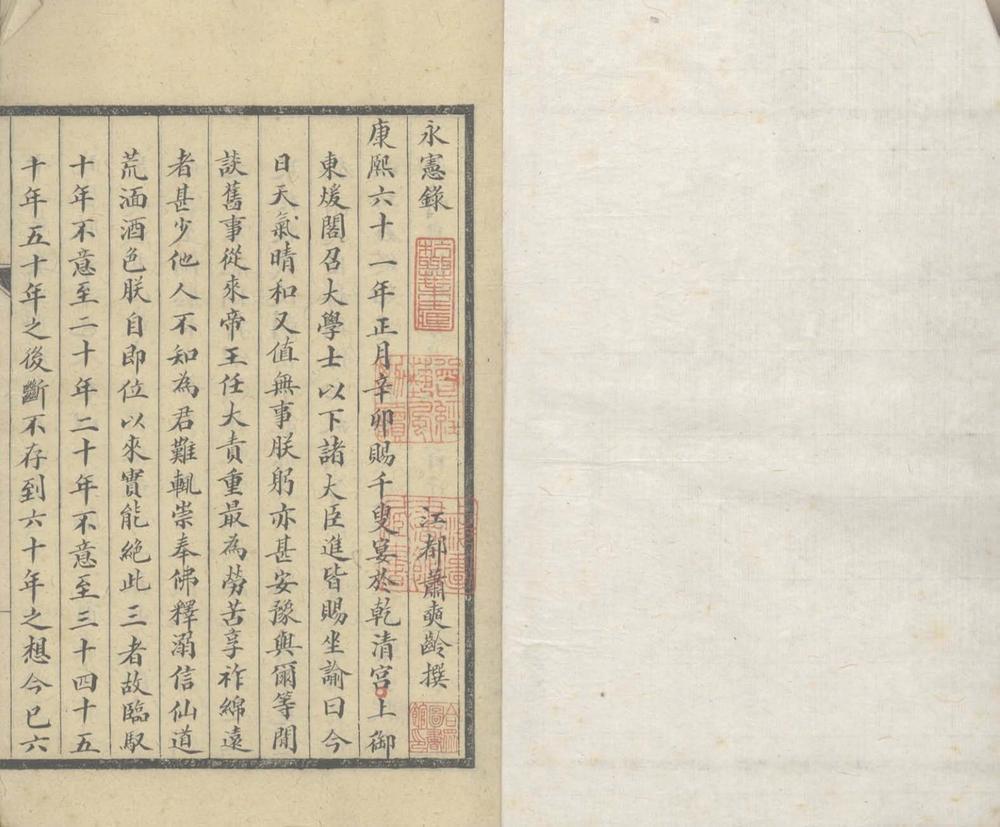 永憲錄
江都蕭奭齡撰
康熙六十一年正月辛卯賜千叟宴於乾清宮上御
東煖閣召大學士以下諸大臣進皆賜坐諭曰今
日天氣晴和又值無事朕躬亦甚安豫與爾等閒
談舊事從來帝王任大責重最為勞苦享祚綿遠
者甚少他人不知為君難輒崇奉佛釋溺信仙道
荒湎酒色朕自即位以來實能絕此三者故臨馭
十年不意至二十年二十年不意至三十四十五
十年五十年之後斷不存到六十年之想今已六